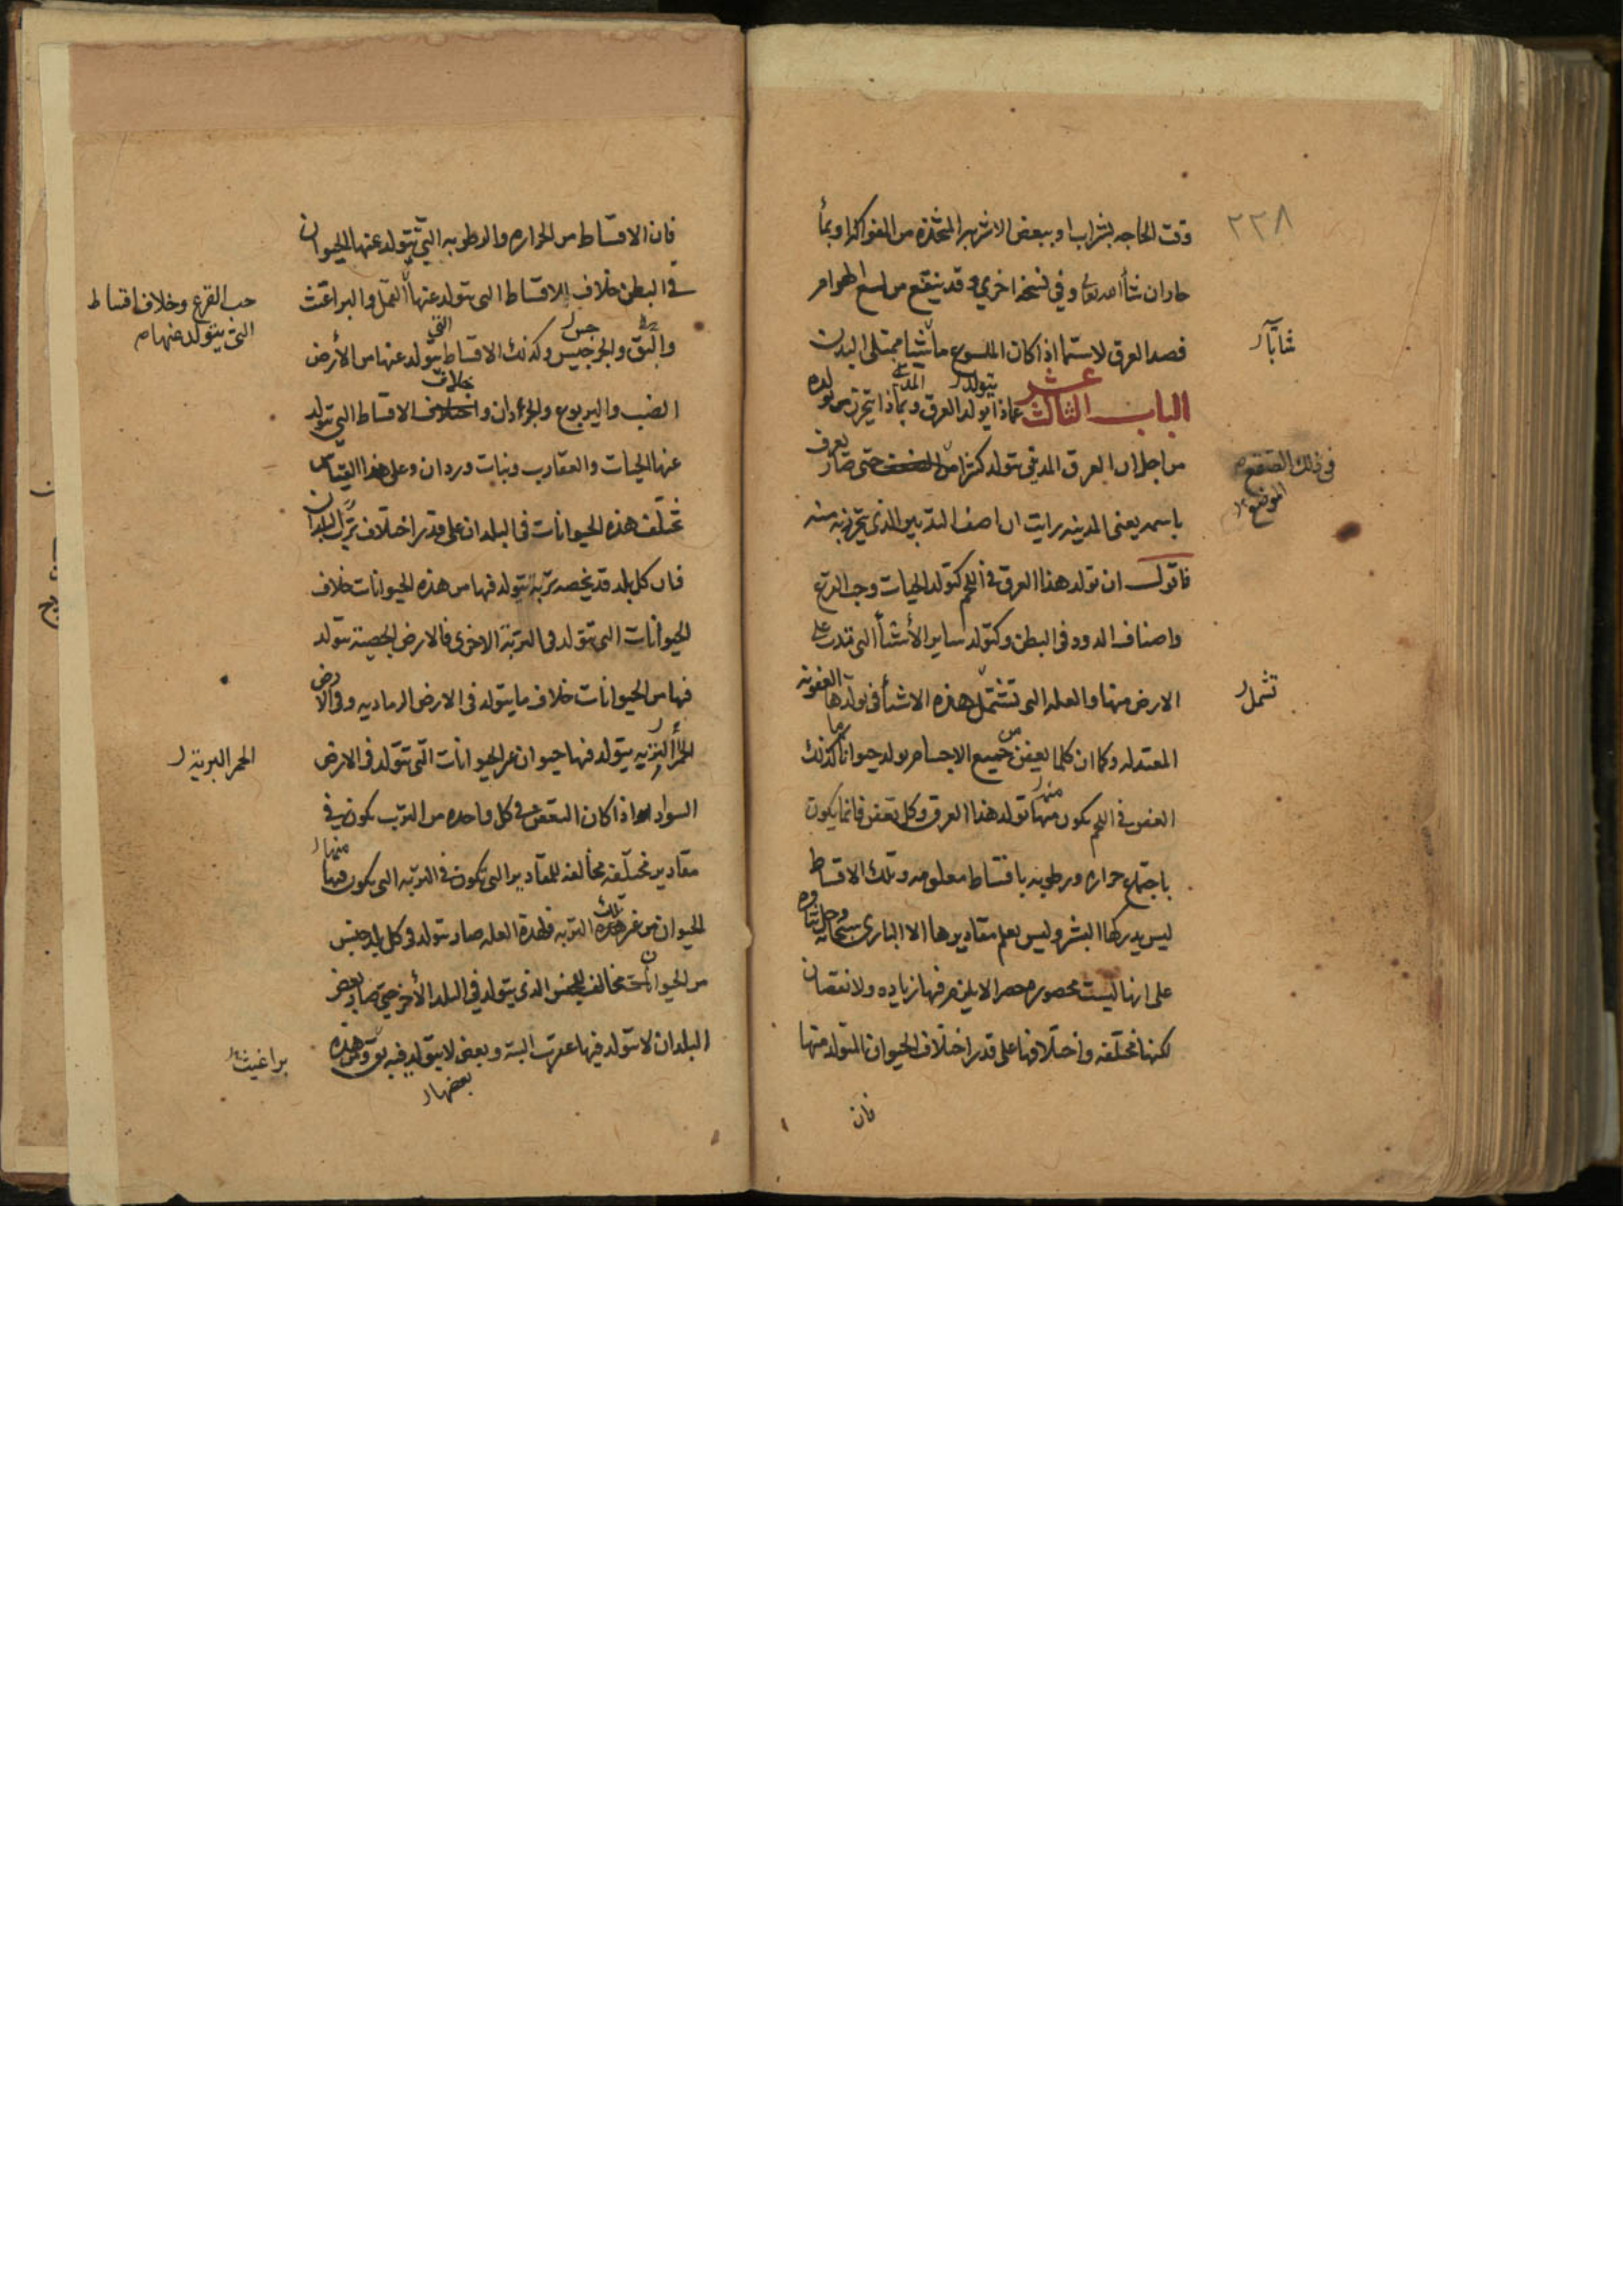 ٢٢٨
وقت الحاجه بشراب او ببعض الاشربه المتخذه من الفواكه او بماء
حار ان شاء الله تعالى وفي نسخه اخري وقد ينتفع من لسع الهوامر
فصد العرق لاسيما اذا كان الملسوع شابا ممتلى البدن
شابا
الباب الثالث عشر عماذا يتولد العرق المدني وبماذا يتحرز من تولده
من اجل ان العرق المديني يتولد كثيرا حتى صار يعرف
في ذلك الصقع
الموضع
باسمه يعنى المدينه رايت ان اصف التدبير الذى يتحرز به منه
فاقول ان تولد هذا العرق في اللحم كتولد الحيات وحب القرع
واصناف الدود في البطن وكتولد ساير الأشياء التى تدب على
الارض منها والعله التى تشتمل هذه الاشياء في تولدها العفونه
تشمل
المعتدله وكما ان كلما يعفن من جميع الاجسام يولد حيوانا ما كذلك
العفن في اللحم يكون منها تولد هذا العرق وكل تعفن فانما يكون
منه
باجتماع حراره ورطوبه باقساط معلومه وتلك الاقساط
ليس يدركها البشر وليس يعلم مقاديرها الا البارى سبحانه وجل ثناوه
على انها ليست محصوره حصرا لا يلزم فيها زياده ولا نقصان
لكنها مختلفه واختلافها على قدر اختلاف الحيوان المتولد منها
فان
فان الاقساط من الحراره والرطوبه التي يتولد عنها الحيوان
في البطن خلاف الاقساط التى يتولد عنها النمل والبراغيث
حب القرع وخلاف اقساط
التى يتولد منها
والبق والجرجيس وكذلك الاقساط التي يتولد عنها من الأرض
الضب واليربوع والجرذان خلاف الاقساط التي يتولد
عنها الحيات والعقارب وبنات وردان وعلى هذا القياس
تختلف هذه الحيوانات في البلدان على قدر اختلاف ترب البلدان
فان كل بلد قد يخصه تربة يتولد فيها من هذه الحيوانات خلاف
الحيوانات التى تتولد في التربة الاخرى فالارض الجصية يتولد
فيها من الحيوانات خلاف ما يتولد في الارض الرماديه وفي الارض
الحمراء يتولد فيها حيوان غير الحيوانات التى تتولد في الارض
الحمر البرية
السوداء اذا كان التعفن في كل واحده من الترب يكون في
مقادير مختلفه مخالفه للمقادير التى تكون في التربه التى يكون فيها
منها
الحيوان من غير تلك التربه فلهذه العله صار يتولد في كل بلد جنس
من الحيوان مخالف للجنس الذى يتولد في البلد الأخر حتى صار بعض
البلدان لا يتولد فيها عقرب البتة وبعض لا يتولد فيه بق وهذه
بعضها
براغيث